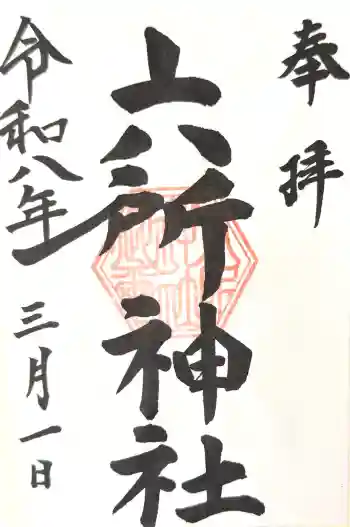 奉拝
六所神社
令和八年
三月一日